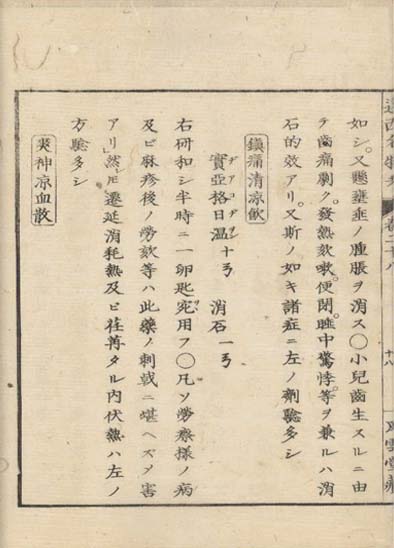 如シ。又懸壅垂ノ腫脹ヲ消ス〇小兒齒生スルニ由
テ齒痛劇ク。發熱欬嗽。便閉。睡中驚悸。等ヲ兼ルハ消
石的效アリ。又斯ノ如キ諸症ニ左ノ劑驗多シ
鎭痛清凉飲
實亞格日溫十弓 消石一弓
ヂアコヂヲン
右研和シ半時ニ一卵匙宛用フ〇凡ソ勞瘵樣ノ病
及ビ麻疹後ノ勞欬等ハ此藥ノ刺戟ニ堪ヘズメ害
アリ然レ𪜈遷延消耗熱及ビ荏苒タル内伏熱ハ左ノ
方驗多シ
爽神凉血散